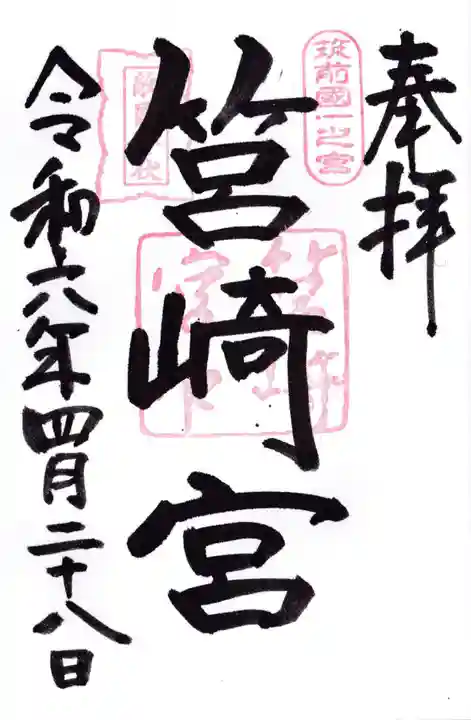 奉拝
筑前國一之宮
筥崎宮
敵國降伏
令和六年四月二十八日